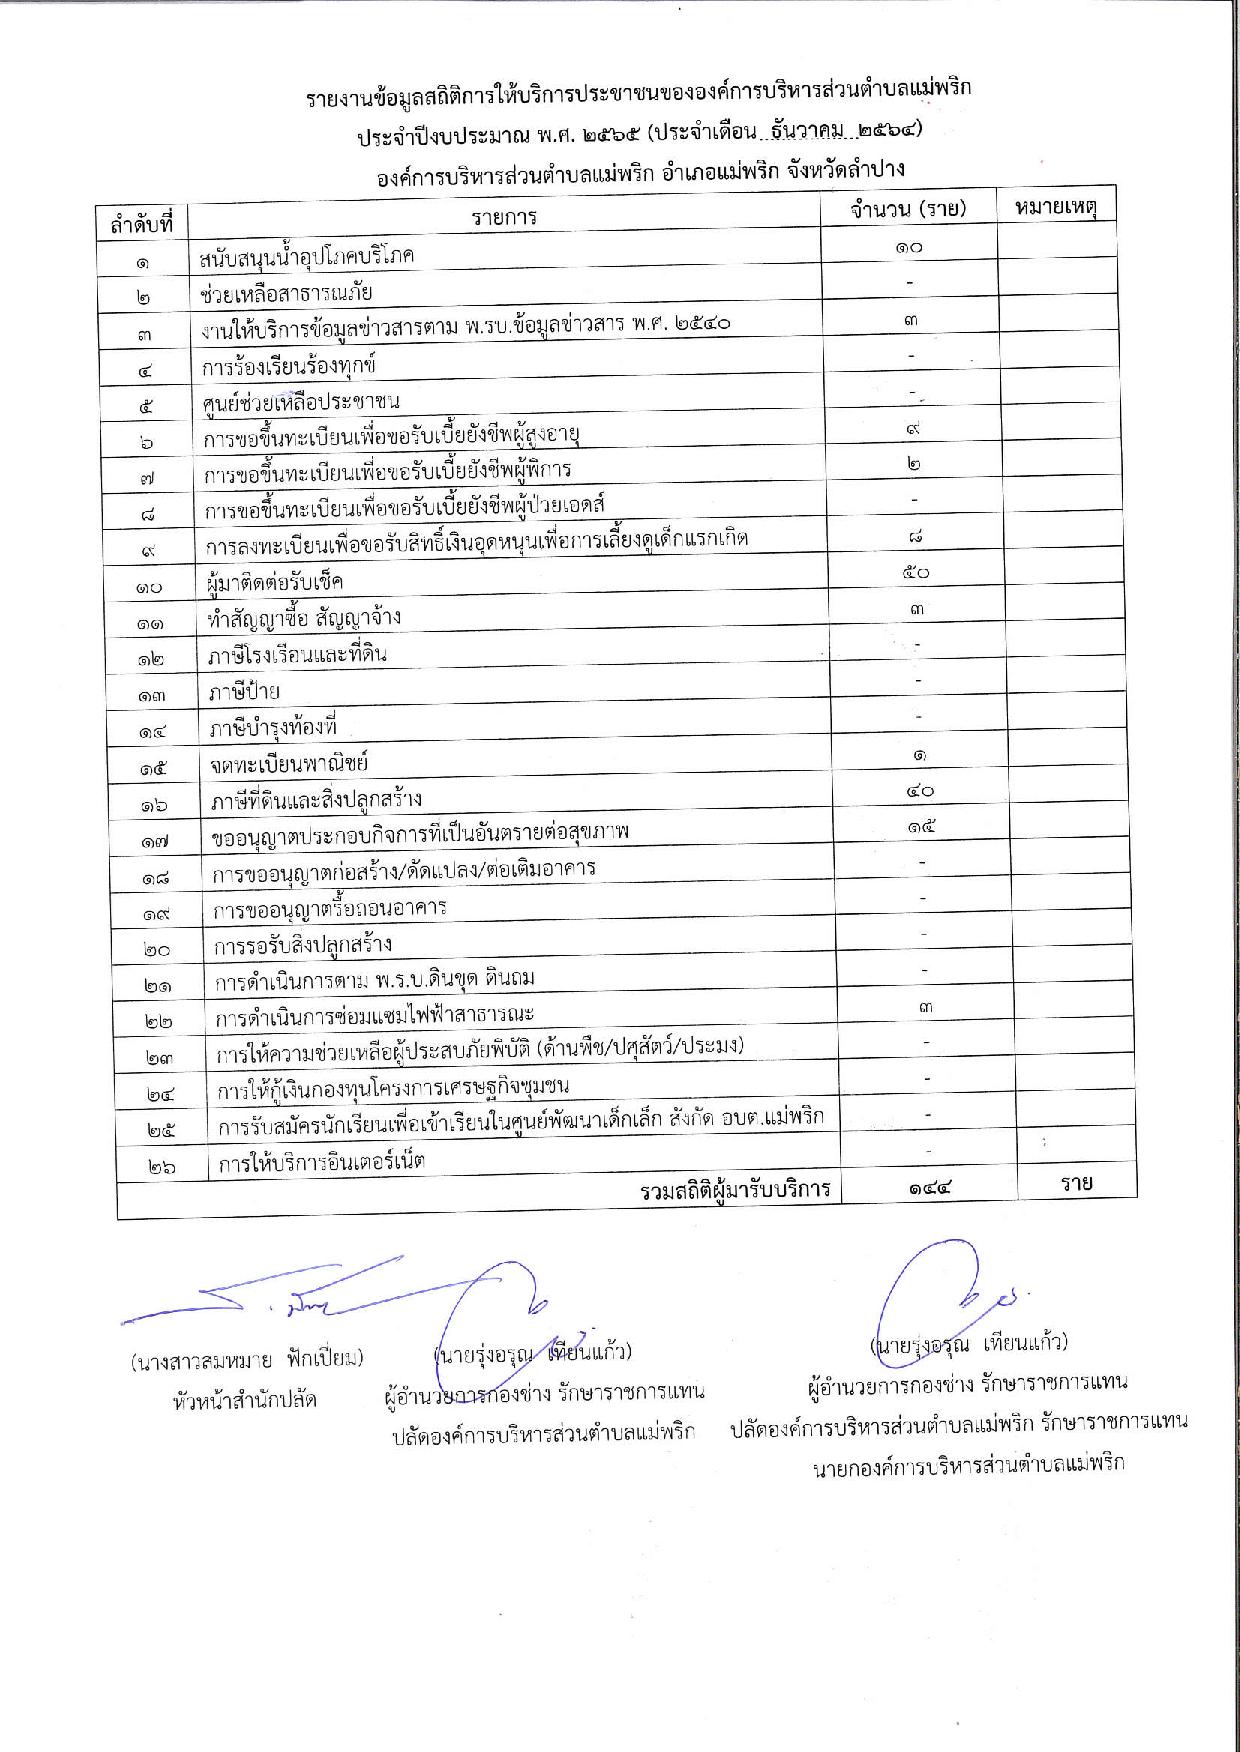 รายงานข้อมูลสถิติการให้บริการประชาชนขององค์การบริหารส่วนตำบลแม่พริก
ประจำปีงบประมาณ พ.ศ. ๒๕๖๕ (ประจำเดือน..ธันวาคม...๒๕๖๔)
องค์การบริหารส่วนตำบลแม่พริก อำเภอแม่พริก จังหวัดลำปาง
ลำดับที่ รายการ จำนวน (ราย) หมายเหตุ
๑ สนับสนุนน้ำอุปโภคบริโภค ๑๐
๒ ช่วยเหลือสาธารณภัย -
๓ งานให้บริการข้อมูลข่าวสารตาม พ.รบ.ข้อมูลข่าวสาร พ.ศ. ๒๕๔๐ ๓
๔ การร้องเรียนร้องทุกข์ -
๕ ศูนย์ช่วยเหลือประชาชน -
๖ การขอขึ้นทะเบียนเพื่อขอรับเบี้ยยังชีพผู้สูงอายุ ๙
๗ การขอขึ้นทะเบียนเพื่อขอรับเบี้ยยังชีพผู้พิการ ๒
๘ การขอขึ้นทะเบียนเพื่อขอรับเบี้ยยังชีพผู้ป่วยเอดส์ -
๙ การลงทะเบียนเพื่อขอรับสิทธิ์เงินอุดหนุนเพื่อการเลี้ยงดูเด็กแรกเกิด ๘
๑๐ ผู้มาติดต่อรับเช็ค ๕๐
๑๑ ทำสัญญาซื้อ สัญญาจ้าง ๓
๑๒ ภาษีโรงเรือนและที่ดิน -
๑๓ ภาษีป้าย -
๑๔ ภาษีบำรุงท้องที่ -
๑๕ จดทะเบียนพาณิชย์ ๑
๑๖ ภาษีที่ดินและสิ่งปลูกสร้าง ๔๐
๑๗ ขออนุญาตประกอบกิจการที่เป็นอันตรายต่อสุขภาพ ๑๕
๑๘ การขออนุญาตก่อสร้าง/ดัดแปลง/ต่อเติมอาคาร -
๑๙ การขออนุญาตรื้อถอนอาคาร -
๒๐ การรอรับสิ่งปลูกสร้าง -
๒๑ การดำเนินการตาม พ.ร.บ.ดินขุด ดินถม -
๒๒ การดำเนินการซ่อมแซมไฟฟ้าสาธารณะ ๓
๒๓ การให้ความช่วยเหลือผู้ประสบภัยพิบัติ (ด้านพืช/ปศุสัตว์/ประมง) -
๒๔ การให้กู้เงินกองทุนโครงการเศรษฐกิจชุมชน -
๒๕ การรับสมัครนักเรียนเพื่อเข้าเรียนในศูนย์พัฒนาเด็กเล็ก สังกัด อบต.แม่พริก -
๒๖ การให้บริการอินเตอร์เน็ต -
รวมสถิติผู้มารับบริการ ๑๔๔ ราย
(นางสาวสมหมาย ฟักเปี่ยม) (นายรุ่งอรุณ เทียนแก้ว) (นายรุ่งอรุณ เทียนแก้ว)
หัวหน้าสำนักปลัด ผู้อำนวยการกองช่าง รักษาราชการแทน ผู้อำนวยการกองช่าง รักษาราชการแทน
ปลัดองค์การบริหารส่วนตำบลแม่พริก ปลัดองค์การบริหารส่วนตำบลแม่พริก รักษาราชการแทน
นายกองค์การบริหารส่วนตำบลแม่พริก